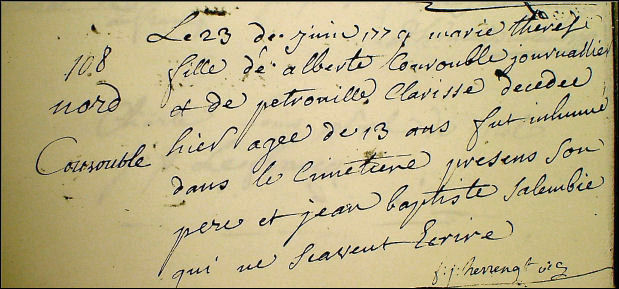 Le 23 de juin 1779 marie théres
108
fille de alberte Courouble journallier
nord
et de petronille Clarisse decedee
Courouble
hier agee de 13 ans fut inhumé
dans le Cimetiere presens son
pere et jean baptiste Salembie
qui ne scavent Ecrire